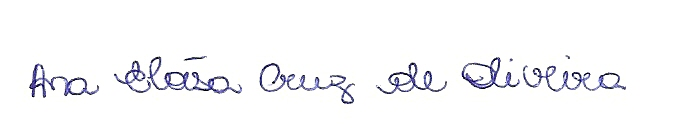 Ana Eloísa Cruz de Oliveira